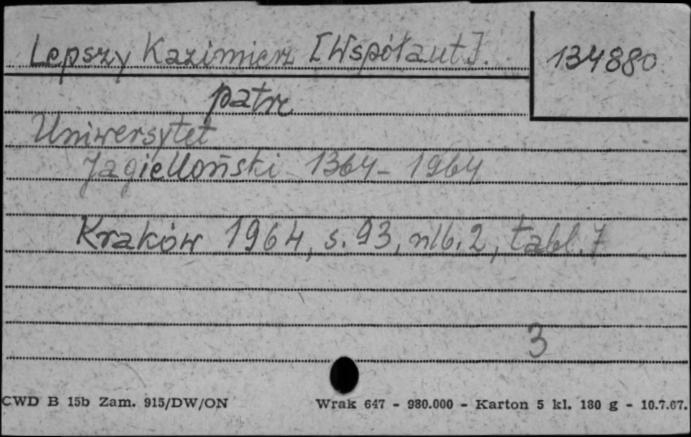 Lepszy Kazimierz [Współaut].
134880
patrz
Uniwersytet
Jagielloński 1364-1964
Kraków 1964, s. 93, nlb. 2, tabl. 7
3
CWD B 15b Zam. 915/DW/ON
Wrak 647 - 980.000 - Karton 5 kl. 180 g - 10.7.67.